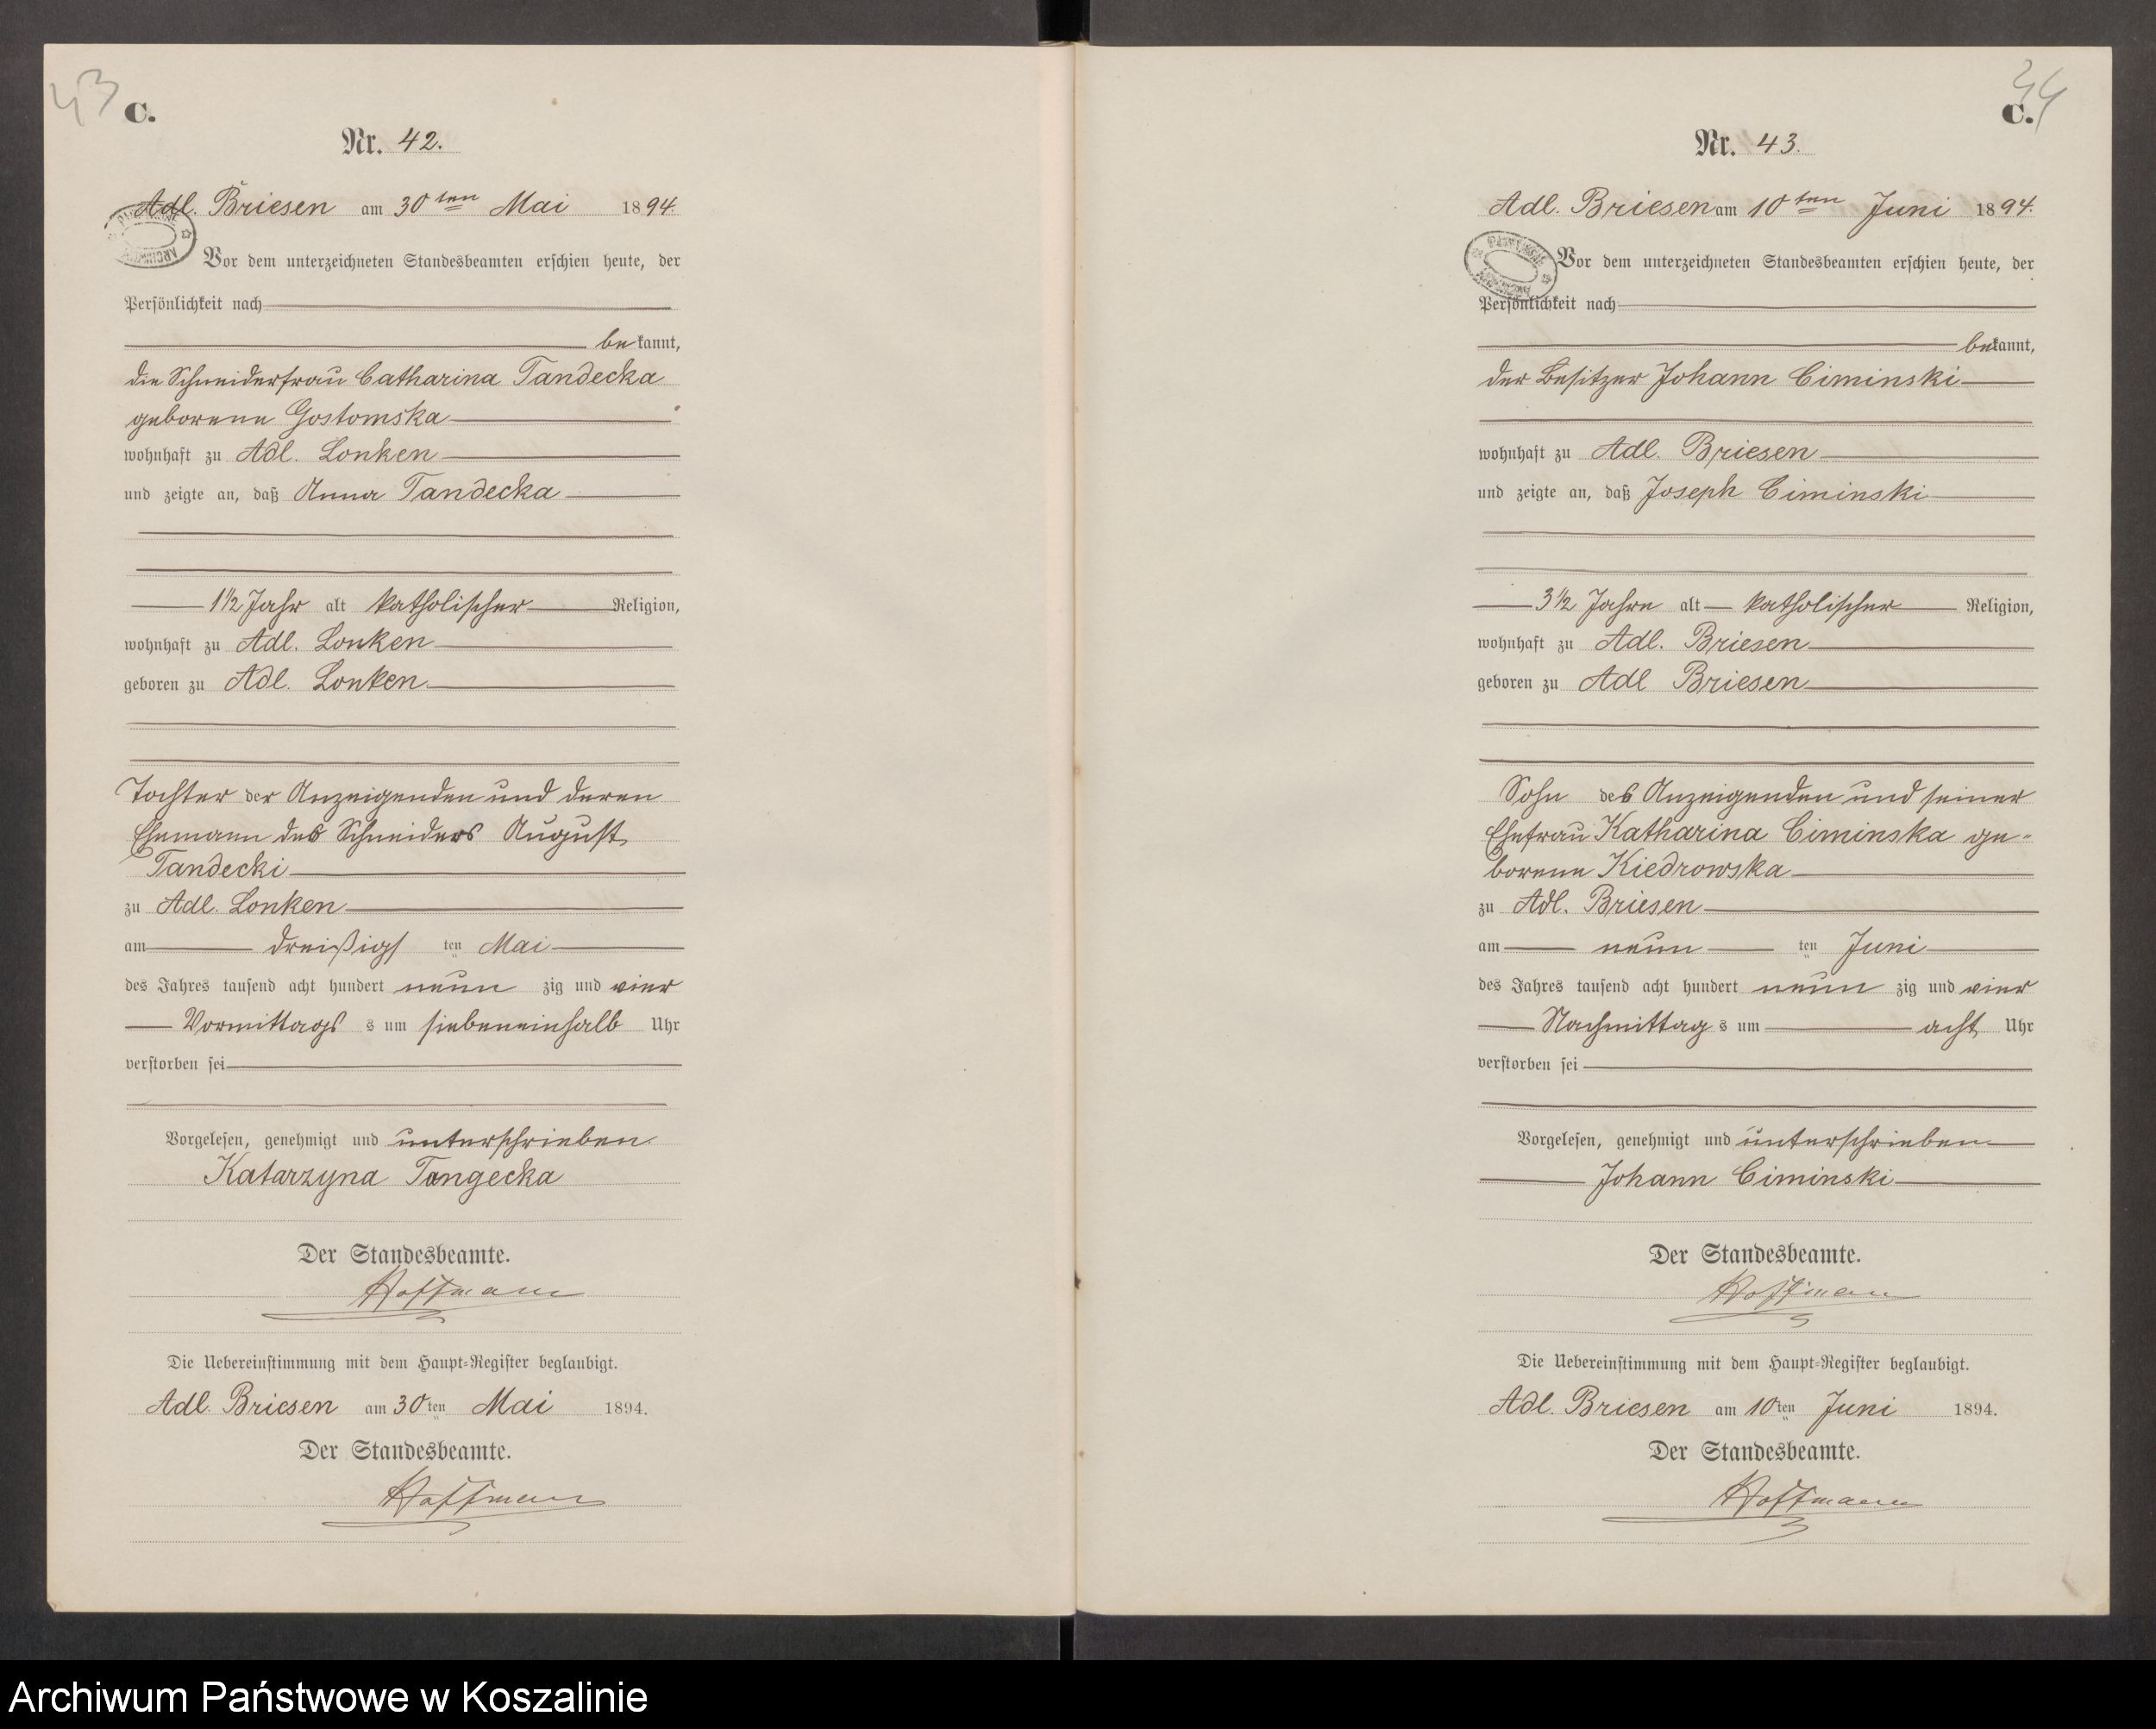 43
C.
Nr. 42.
Adl. Briesen am 30ten Mai 1894.
Vor dem unterzeichneten Standesbeamten erschien heute, der
Persönlichkeit nach
bekannt,
die Schneiderfrau Catharina Tandecka
geborene Gostomska
wohnhaft zu Adl. Lonken
und zeigte an, daß Anna Tandecka
1 1/2 Jahr alt katholischer Religion,
wohnhaft zu Adl. Lonken
geboren zu Adl. Lonken
Tochter der Anzeigenden und deren
Ehemann des Schneiders August
Tandecki
zu Adl. Lonken
am dreißigs ten Mai
des Jahres tausend acht hundert neun zig und vier
Vormittags s um siebeneinhalb Uhr
verstorben sei
Vorgelesen, genehmigt und unterschrieben
Katarzyna Tangecka
Der Standesbeamte.
Hoffmann
Die Uebereinstimmung mit dem Haupt-Register beglaubigt.
Adl. Briesen am 30ten Mai 1894.
Der Standesbeamte.
Hoffmann
44
C.
Nr. 43.
Adl. Briesen am 10ten Juni 1894.
Vor dem unterzeichneten Standesbeamten erschien heute, der
Persönlichkeit nach
bekannt,
der Besitzer Johann Ciminski
wohnhaft zu Adl. Briesen
und zeigte an, daß Joseph Ciminski
3 1/2 Jahre alt katholischer Religion,
wohnhaft zu Adl. Briesen
geboren zu Adl Briesen
Sohn des Anzeigenden und seiner
Ehefrau Katharina Ciminska ge-
borene Kiedrowska
zu Adl. Briesen
am neun ten Juni
des Jahres tausend acht hundert neun zig und vier
Nachmittag s um acht Uhr
verstorben sei
Vorgelesen, genehmigt und unterschrieben
Johann Ciminski
Der Standesbeamte.
Hoffmann
Die Uebereinstimmung mit dem Haupt-Register beglaubigt.
Adl. Briesen am 10ten Juni 1894.
Der Standesbeamte.
Hoffmann
Archiwum Państwowe w Koszalinie